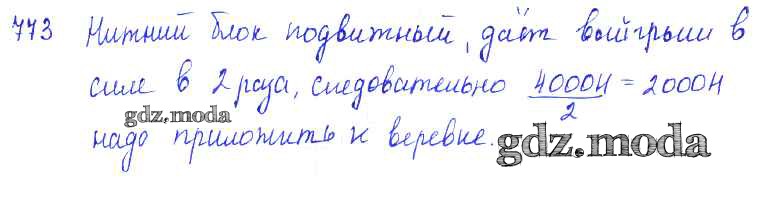 773 Нижний блок подвижный, даёт выигрыш в
силе в 2 раза, следовательно 4000Н/2 = 2000Н
gdz.moda
надо приложить к веревке.
gdz.moda